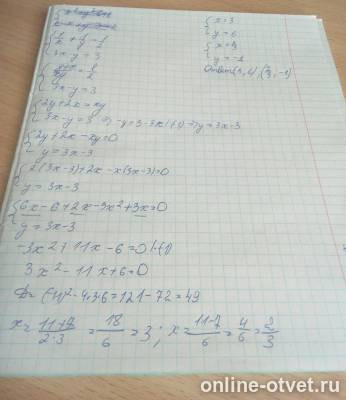 {1/x + 1/y = 1/2
3x - y = 3
{y+x/xy = 1/2
3x - y = 3
{2y + 2x = xy
3x - y = 3 => -y = 3 - 3x |·(-1) => y = 3x - 3
{2y + 2x - xy = 0
y = 3x - 3
{2(3x-3) + 2x - x(3x-3) = 0
y = 3x - 3
{6x - 6 + 2x - 3x² + 3x = 0
y = 3x - 3
-3x² + 11x - 6 = 0 |·(-1)
3x² - 11x + 6 = 0
D = (-11)² - 4·3·6 = 121 - 72 = 49
x = 11+7/2·3 = 18/6 = 3; x = 11-7/6 = 4/6 = 2/3
{x = 3
y = 6
{x = 2/3
y = -1
Ответ: (3, 6), (2/3, -1)
online-otvet.ru